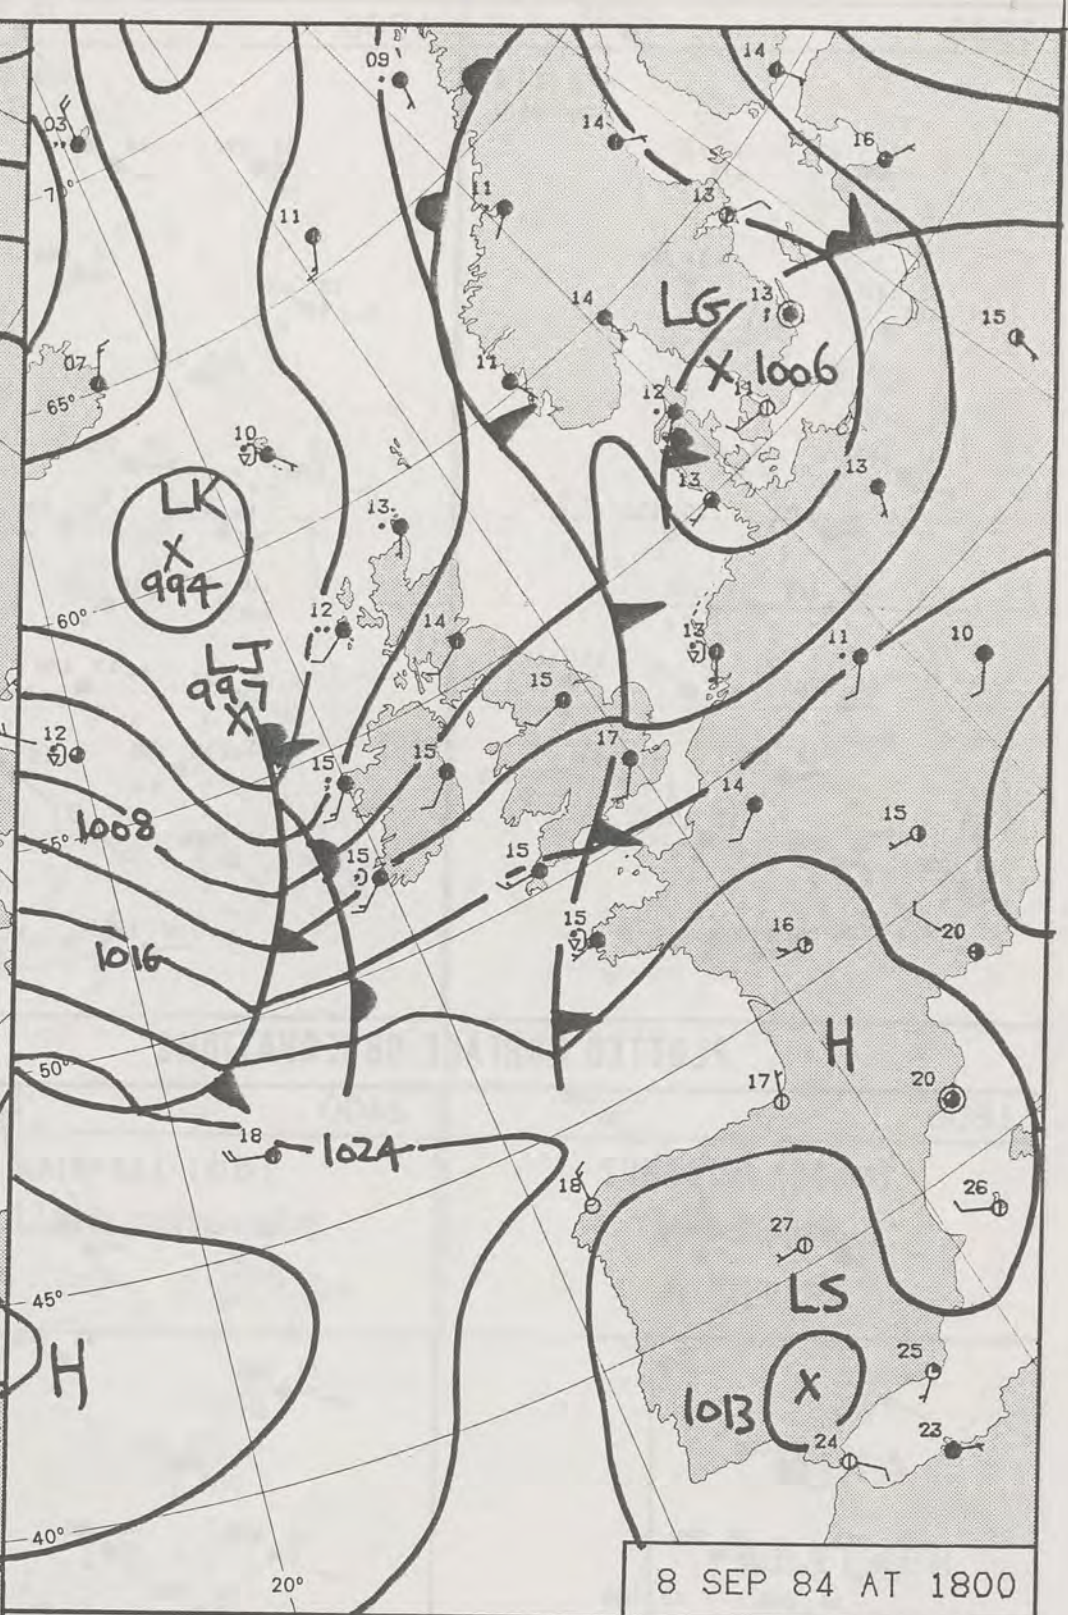 09
14
03
14
16
70°
11
13
11
14
LG
13
15
X 1006
07
11
12
11
65°
10
13
13
LK
X
994
13
60°
12
14
LJ
997
X
13
11
10
15
12
15
15
17
14
15
1008
55°
15
15
15
16
20
1016
H
50°
17
20
18
1024
18
26
27
LS
45°
H
25
X
1013
24
23
40°
20°
8 SEP 84 AT 1800